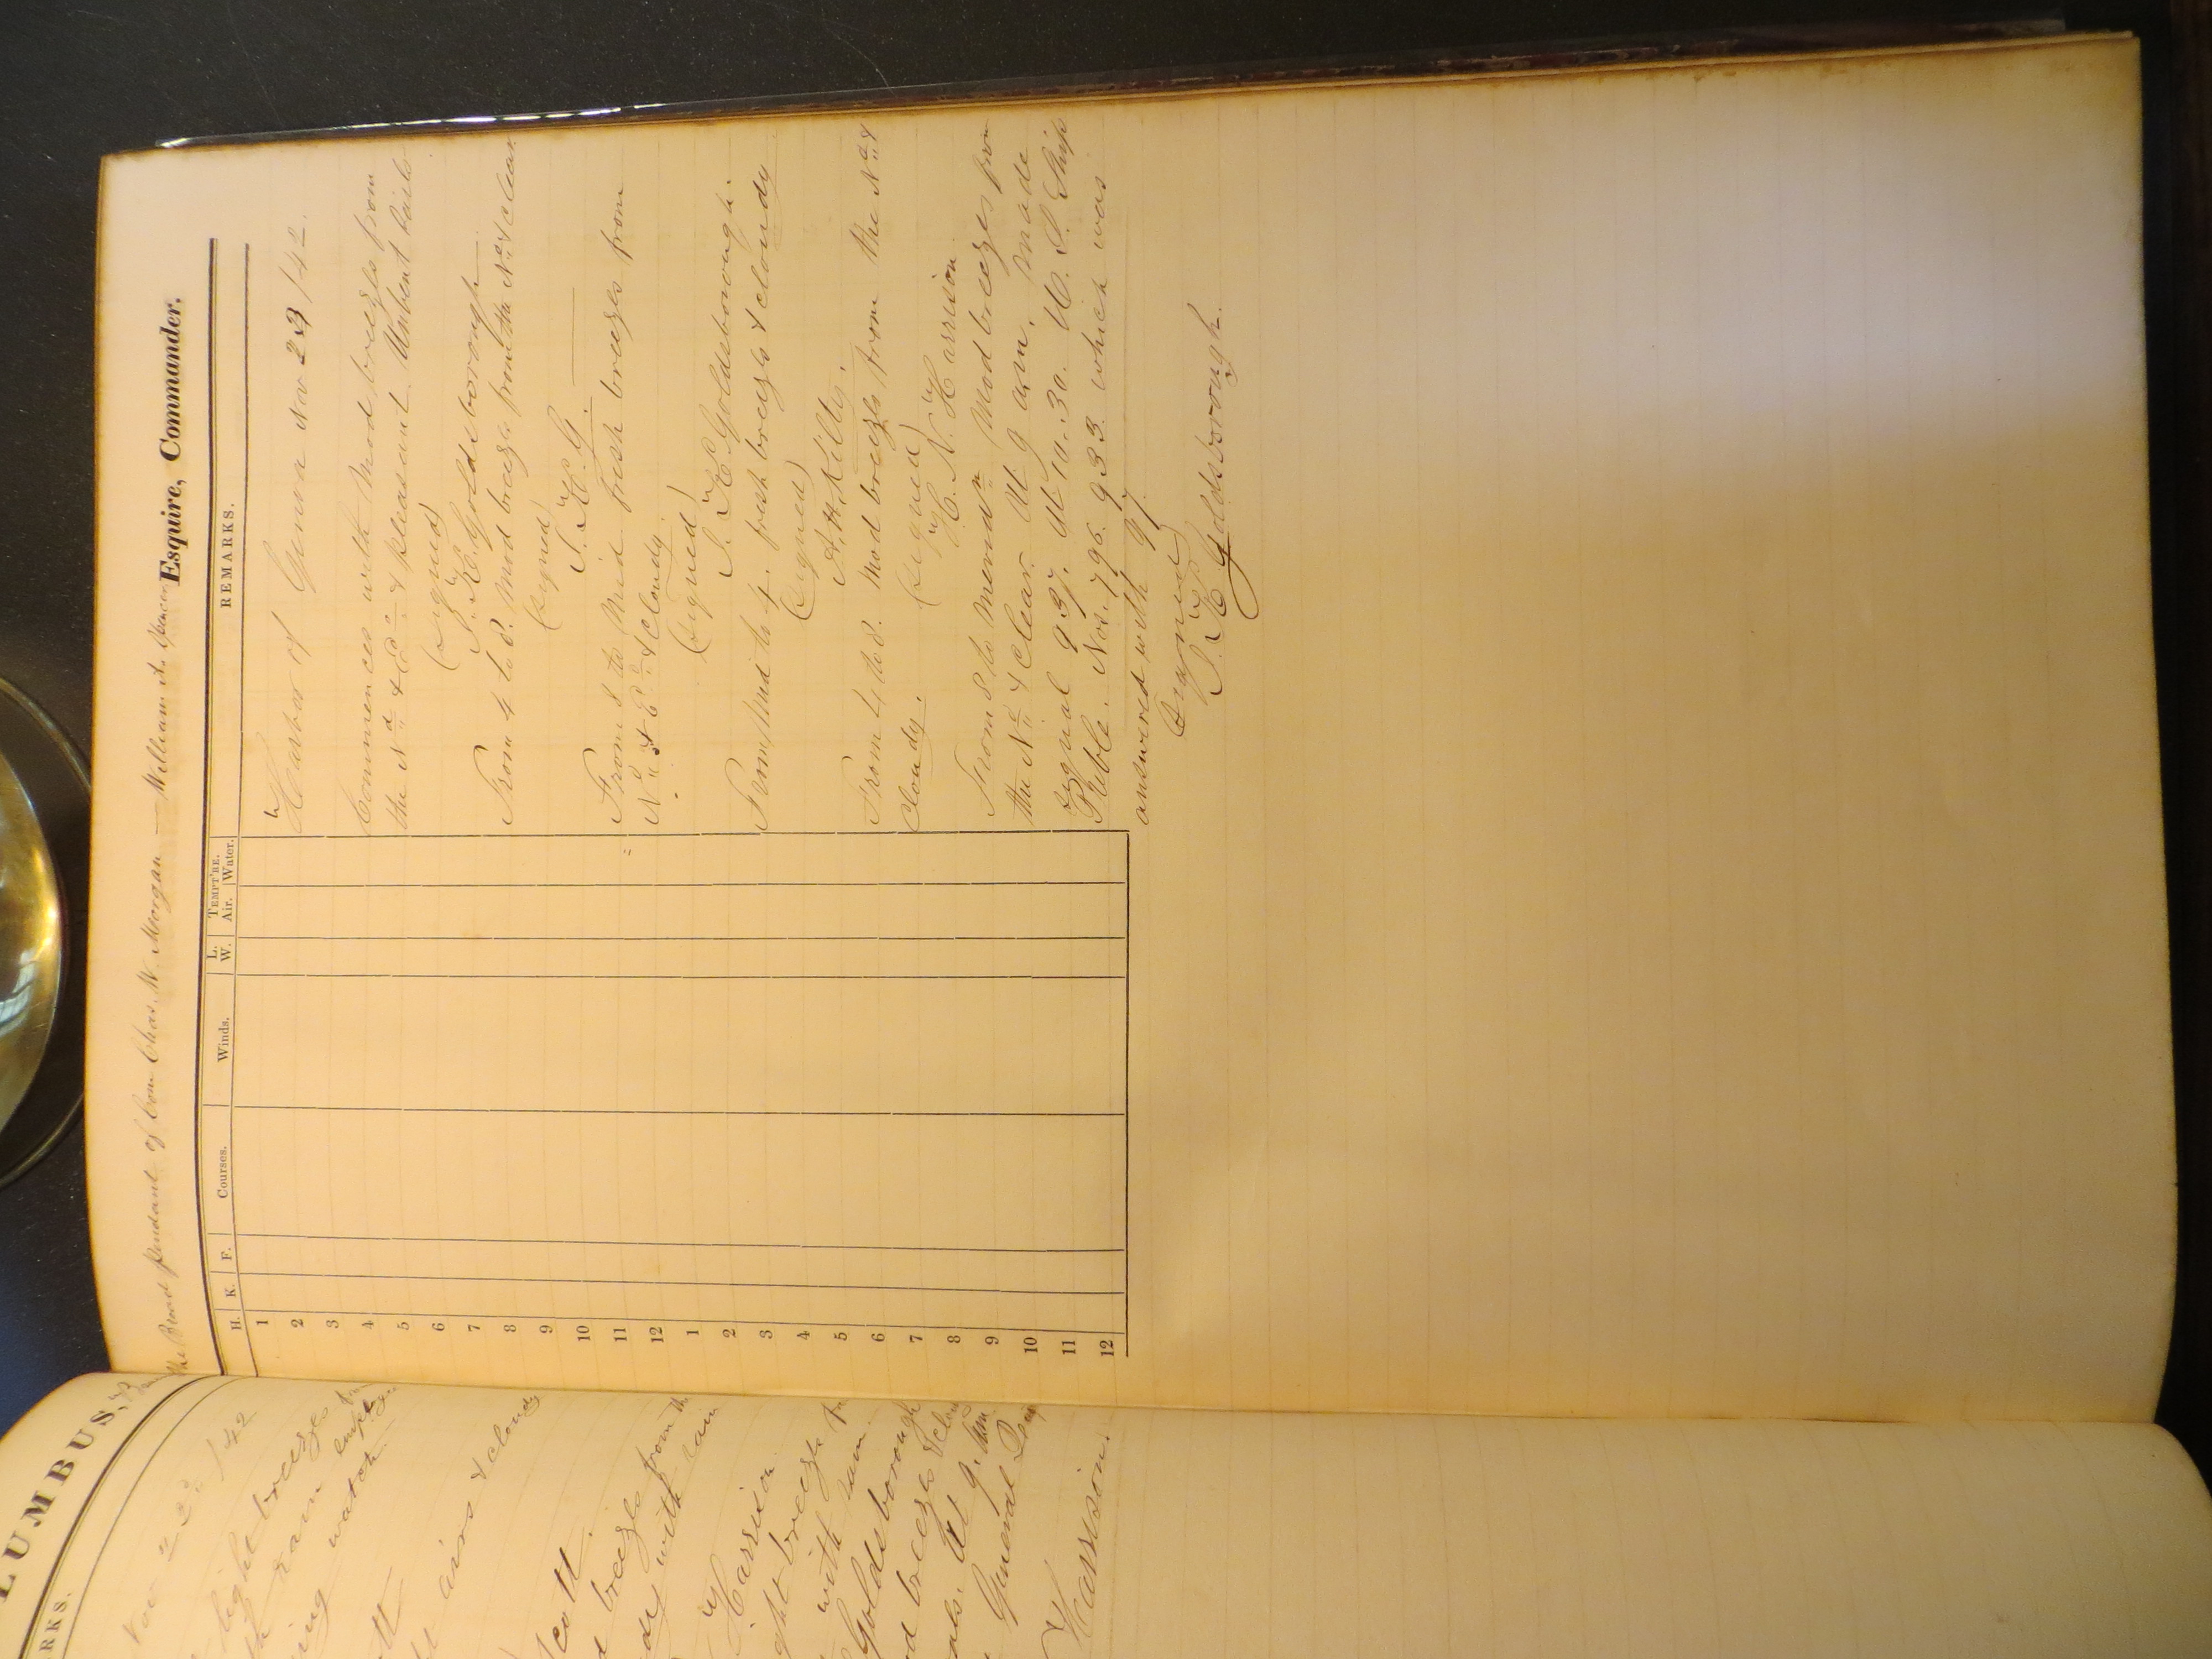 LUMBUS,
RKS.
Nov 22 / 42
light breezes
rain
ing watch
airs & cloudy
cott.
d breezes from th
dy with rain
Harrison
ght breeze
with rain
Goldsborough
d breezes & clou
At 9.
General
Harrison.
the Broad pendant of Com Chas. W. Morgan — William A. Spencer Esquire, Commander.
H. K. F. Courses. Winds. L. W. TEMPT'RE. Air. Water. REMARKS.
1
2
3
4
5
6
7
8
9
10
11
12
1
2
3
4
5
6
7
8
9
10
11
12
Harbor of Genoa Nov 23 / 42.
Commences with Mod breezes from
the Nd & Ed & pleasant Unbent sails
(signed)
L. M. Goldsborough
From 4 to 8. Mod breezes from the Nd & clear
(signed)
L. M. G.
From 8 to Mid fresh breezes from
Nd & Ed & Cloudy.
(signed)
L. M. Goldsborough.
From Mid to 4. fresh breezes & cloudy
(signed)
A. H. Kilty.
From 4 to 8. Mod breezes from the Nd &
Cloudy.
(signed)
H. N. Harrison.
From 8 to Meridn Mod breezes from
the Nd & Clear. At 9 a.m. made
signal 937. At 10.30. U. S. Ship
Preble. Nos. 796. 933. which was
answered with 97.
(signed)
L. M. Goldsborough.